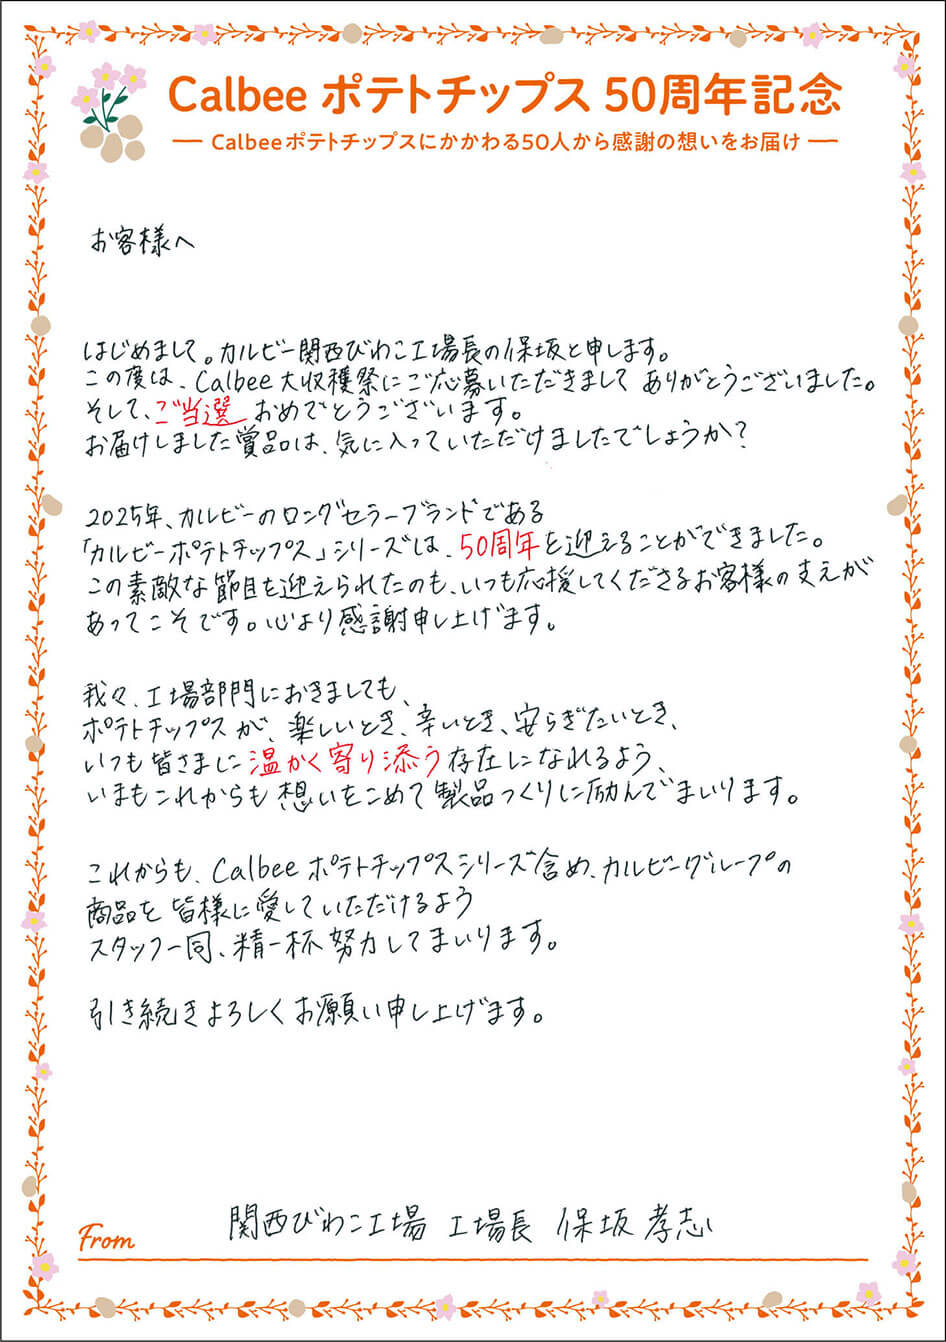 Calbee ポテトチップス 50周年記念
Calbeeポテトチップスにかかわる50人から感謝の想いをお届け
お客様へ
はじめまして。カルビー関西びわこ工場長の保坂と申します。
この度は、Calbee大収穫祭にご応募いただきまして ありがとうございました。
そして、ご当選 おめでとうございます。
お届けしました賞品は、気に入っていただけましたでしょうか?
2025年、カルビーのロングセラーブランドである
「カルビーポテトチップス」シリーズは、50周年を迎えることができました。
この素敵な節目を迎えられたのも、いつも応援してくださるお客様の支えが
あってこそです。心より感謝申し上げます。
我々、工場部門におきましても、
ポテトチップスが、楽しいとき、辛いとき、安らぎたいとき、
いつも皆さまに温かく寄り添う存在になれるよう、
いまもこれからも想いをこめて製品つくりに励んでまいります。
これからも、Calbeeポテトチップスシリーズ含め、カルビーグループの
商品を皆様に愛していただけるよう
スタッフ一同、精一杯努力してまいります。
引き続きよろしくお願い申し上げます。
From 関西びわこ工場 工場長 保坂 孝志